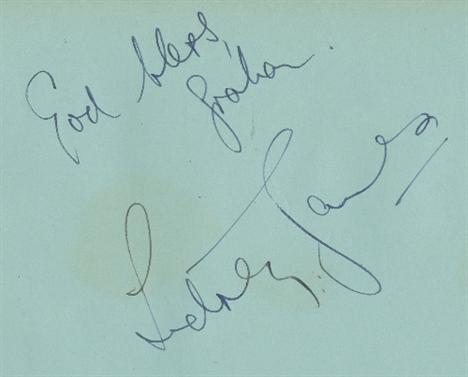 God bless,
Graham.
Sidney James